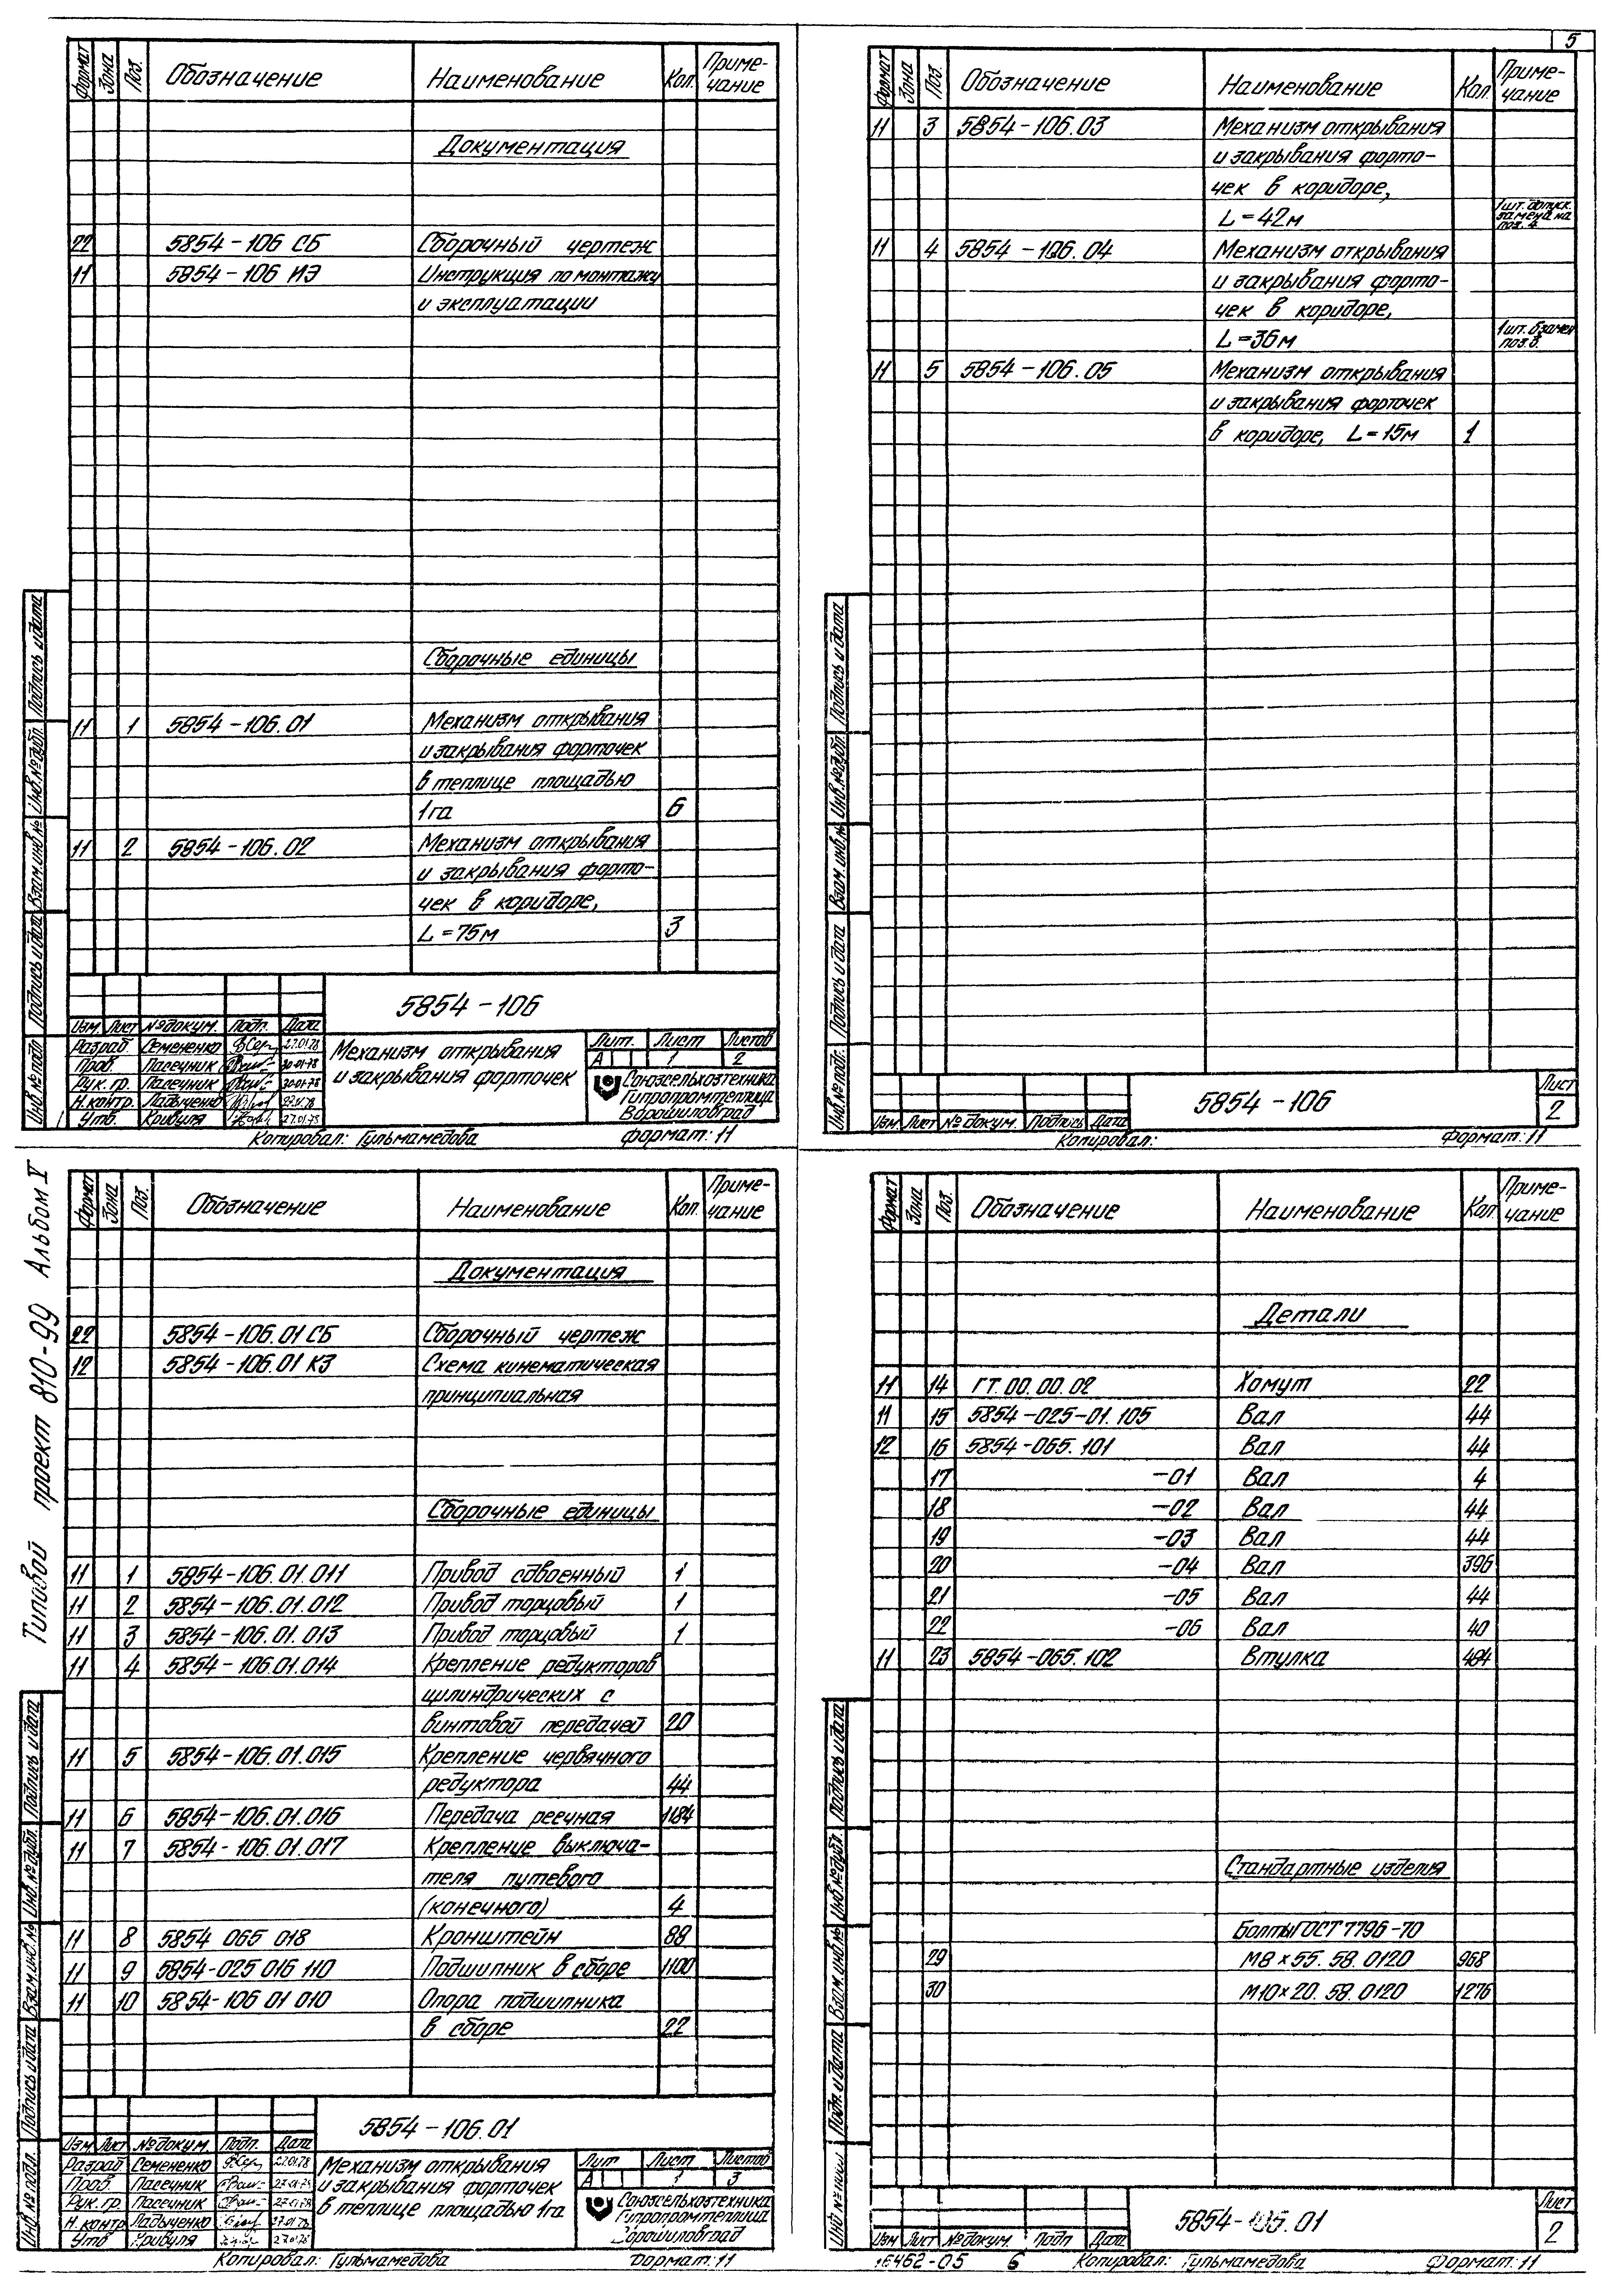 5
Формат Зона Поз. Обозначение Наименование Кол. Примечание
Документация
22 5854-106 СБ Сборочный чертеж
11 5854-106 ИЭ Инструкция по монтажу
и эксплуатации
Сборочные единицы
11 1 5854-106.01 Механизм открывания
и закрывания форточек
в теплице площадью
1га 6
11 2 5854-106.02 Механизм открывания
и закрывания форто-
чек в коридоре,
L=75м 3
Инв.№подл. Подпись и дата Взам.инв.№ Инв.№дубл. Подпись и дата
5854-106
Изм. Лист №докум. Подп. Дата
Разраб. Семененко 27.01.78
Пров. Пасечник 30.01.78
Рук. гр. Пасечник 30.01.78
Н.контр. Ладыченко
Утв. Кривуля 27.01.78
Механизм открывания
и закрывания форточек
Лит. Лист Листов
А 1 2
Союзсельхозтехника
Гипропромтеплица
Ворошиловград
Копировал: Гульмамедова Формат: 11
Формат Зона Поз. Обозначение Наименование Кол. Примечание
11 3 5854-106.03 Механизм открывания
и закрывания форто-
чек в коридоре,
L=42м 1шт. допуск. замена на поз. 4
11 4 5854-106.04 Механизм открывания
и закрывания форто-
чек в коридоре,
L=36м 1шт. взамен поз.3.
11 5 5854-106.05 Механизм открывания
и закрывания форточек
в коридоре, L=15м 1
Инв.№подл. Подпись и дата Взам.инв.№ Инв.№дубл. Подпись и дата
Изм Лист №докум. Подпись Дата
5854-106
Лист
2
Копировал: Формат: 11
Типовой проект 810-99 Альбом V
Формат Зона Поз. Обозначение Наименование Кол. Примечание
Документация
22 5854-106.01 СБ Сборочный чертеж
12 5854-106.01 КЗ Схема кинематическая
принципиальная
Сборочные единицы
11 1 5854-106.01.011 Привод сдвоенный 1
11 2 5854-106.01.012 Привод торцовый 1
11 3 5854-106.01.013 Привод торцовый 1
11 4 5854-106.01.014 Крепление редукторов
цилиндрических с
винтовой передачей 20
11 5 5854-106.01.015 Крепление червячного
редуктора 44
11 6 5854-106.01.016 Передача реечная 1184
11 7 5854-106.01.017 Крепление выключа-
теля путевого
(конечного) 4
11 8 5854 065 018 Кронштейн 88
11 9 5854-025 016 110 Подшипник в сборе 1100
11 10 5854-106 01 010 Опора подшипника
в сборе 22
Инв.№подл. Подпись и дата Взам.инв.№ Инв.№дубл. Подпись и дата
5854-106.01
Изм Лист №докум. Подп. Дата
Разраб Семененко 27.01.78
Пров. Пасечник 27.01.78
Рук. гр. Пасечник 27.01.78
Н.контр Ладыченко 27.01.78
Утв Кривуля 27.01.78
Механизм открывания
и закрывания форточек
в теплице площадью 1га
Лит Лист Листов
А 1 3
Союзсельхозтехника
Гипропромтеплица
Ворошиловград
Копировал: Гульмамедова Формат: 11
Формат Зона Поз. Обозначение Наименование Кол Примечание
Детали
11 14 ГТ.00.00.02 Хомут 22
11 15 5854-025-01.105 Вал 44
12 16 5854-065.101 Вал 44
17 -01 Вал 4
18 -02 Вал 44
19 -03 Вал 44
20 -04 Вал 396
21 -05 Вал 44
22 -06 Вал 40
11 23 5854-065.102 Втулка 484
Стандартные изделия
Болты ГОСТ 7796-70
29 М8×55.58.0120 968
30 М10×20.58.0120 1276
Подп. и дата Взам.инв.№ Инв.№дубл. Подпись и дата
Изм Лист №докум. Подп Дата
5854-106.01
Лист
2
16462-05 6 Копировал: Гульмамедова Формат: 11